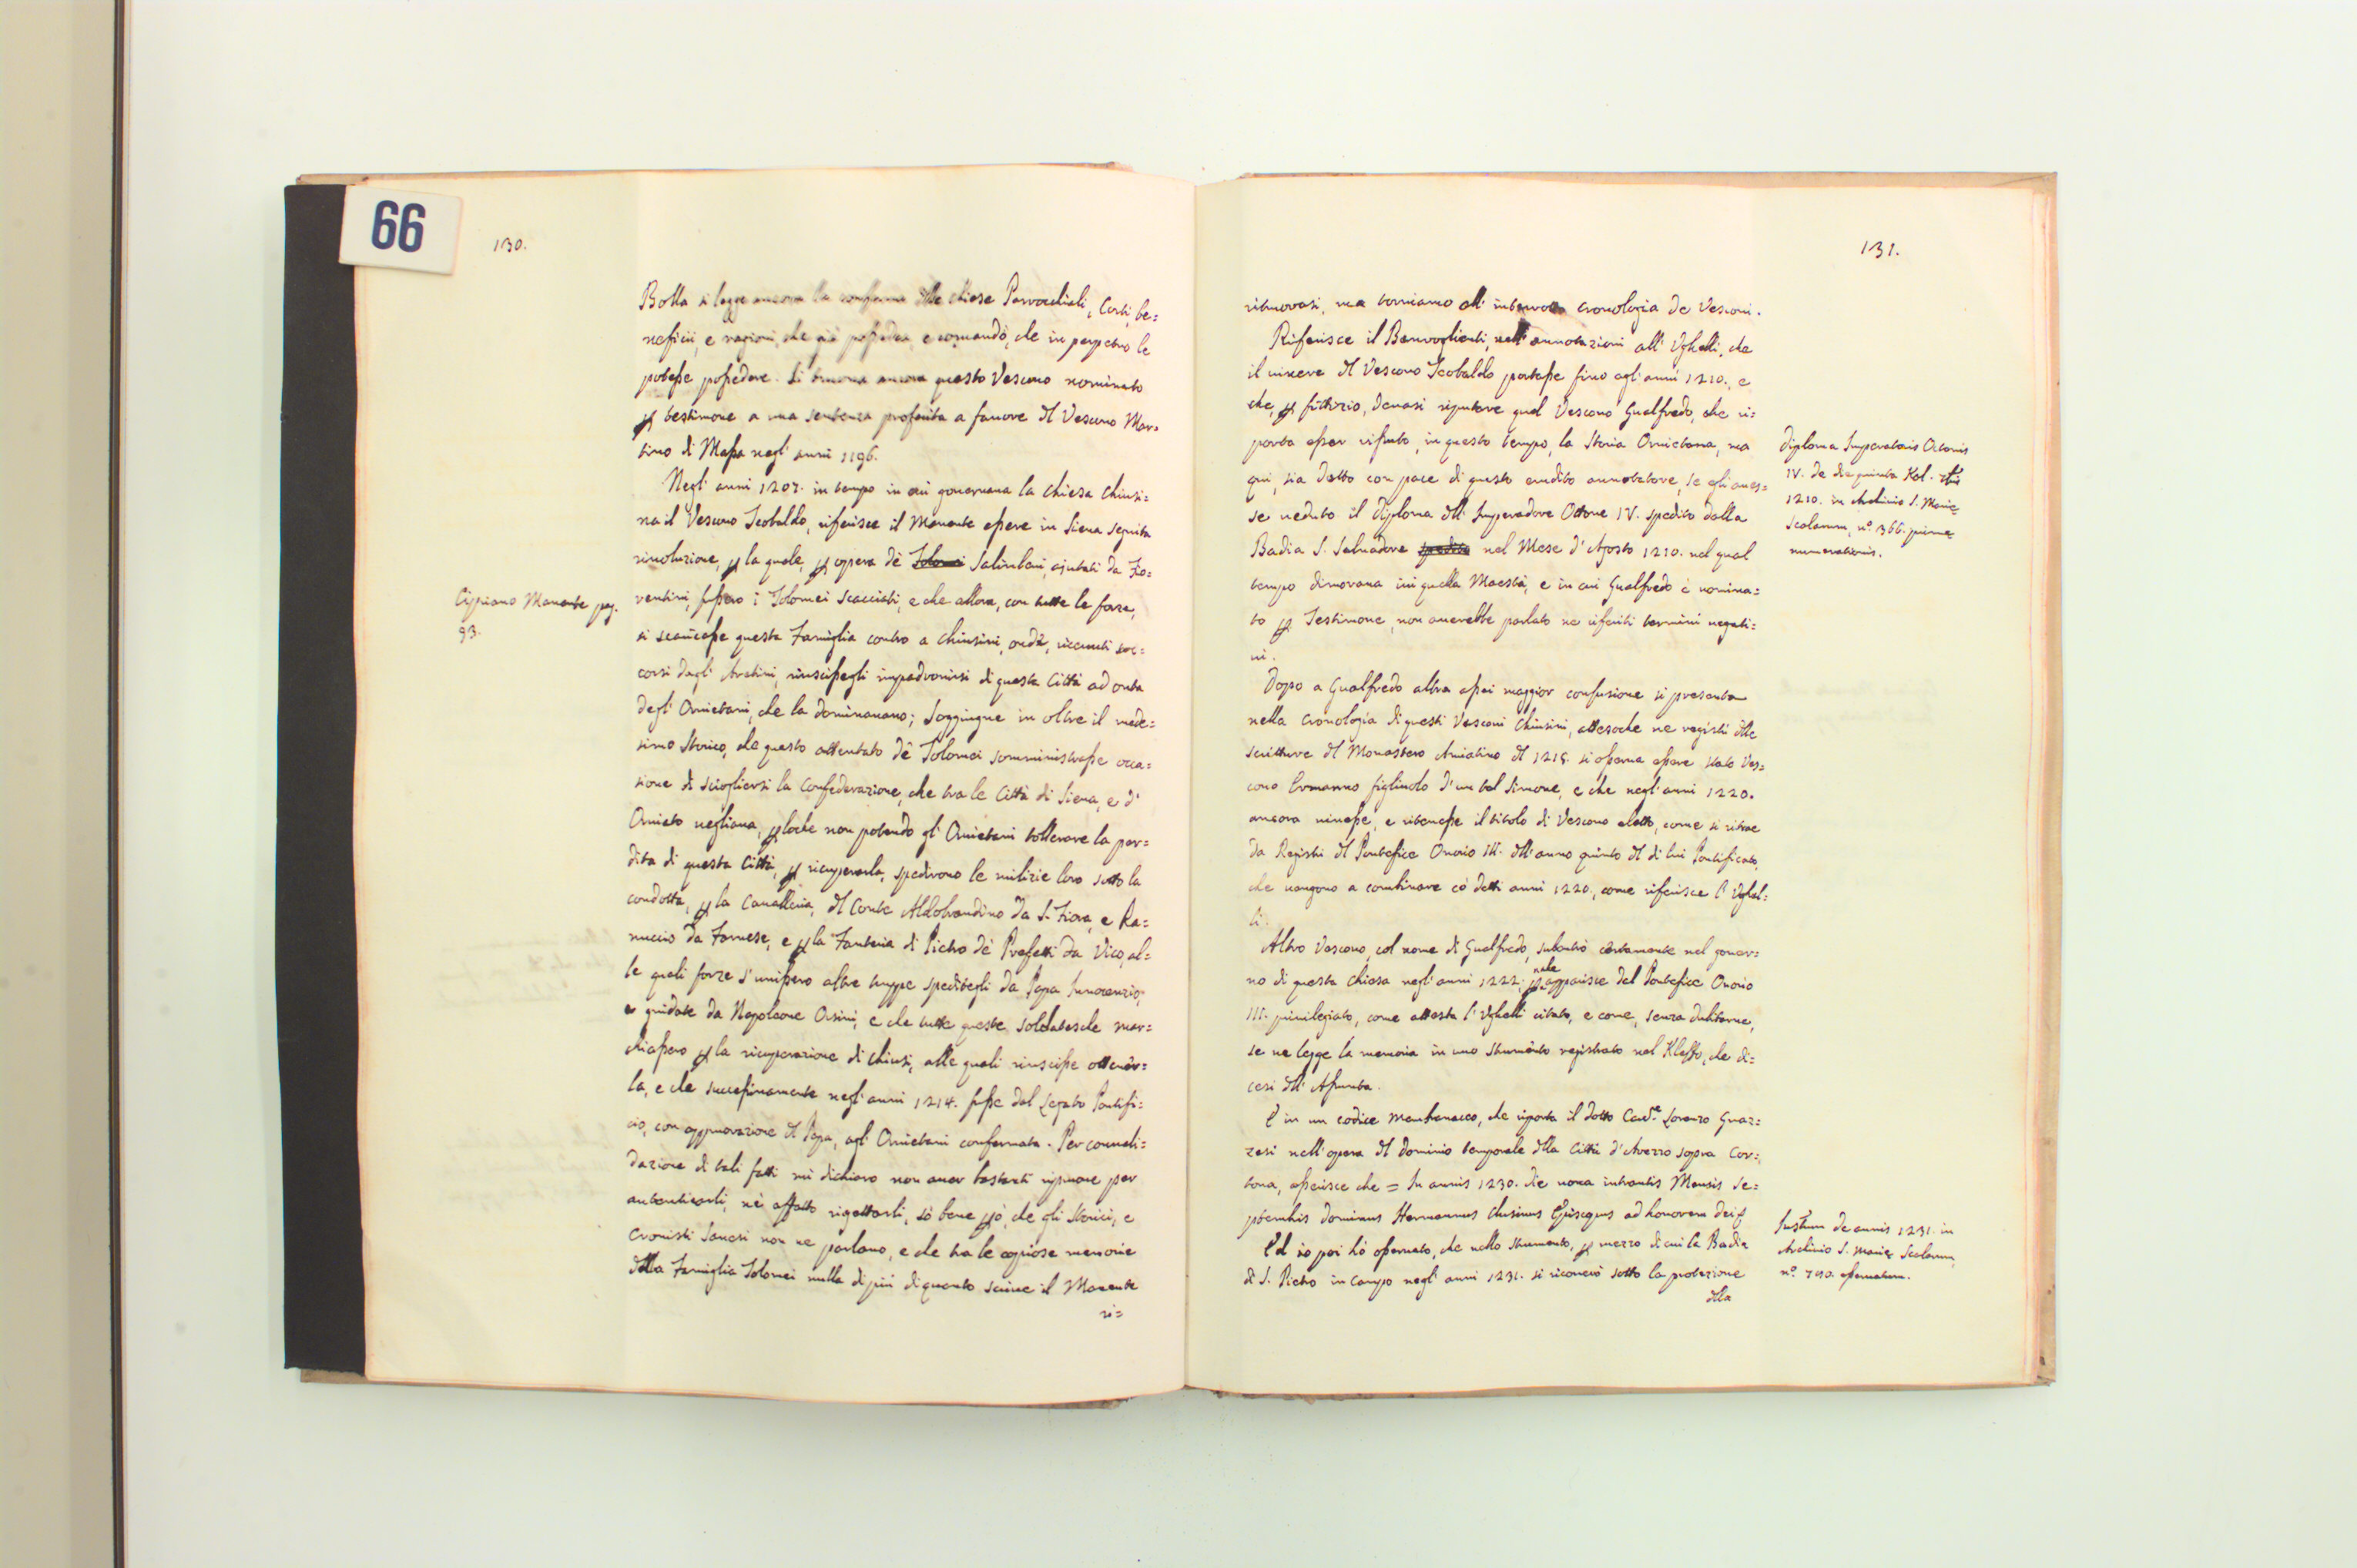 66
130.
Bolla si legge ancora la conferma delle chiese Parrochiali, Corti, be=
neficii, e ragioni, che già possedea e comandò, che in perpetuo le
potesse possedere. Si truova ancora questo Vescovo nominato
per testimone a una sentenza proferita a favore del Vescovo Mar=
tino di Massa negl' anni 1196.
Negl' anni 1207. in tempo in cui governava la chiesa Chiusi=
na il Vescovo Teobaldo, riferisce il Manente essere in Siena seguita
rivoluzione, per la quale, per opera dè Tolomei Salimbeni, ajutati da Fio=
rentini, fussero i Tolomei scacciati, e che allora, con tutte le forze,
si scaricasse questa Famiglia contro a Chiusini, ondè, ricevuti soc=
corsi dagl' Aretini, riuscissegli impadronirsi di questa Città ad onta
degl' Orvietani, che la dominavano; Soggiugne in oltre il mede=
simo Storico, che questo attentato dè Tolomei somministrasse occa=
sione di sciogliersi la Confederazione, che tra le Città di Siena, e d'
Orvieto vegliava, perloche non potendo gl' Orvietani tollerare la per=
dita di questa Città, per ricuperarla, spedirono le milizie loro sotto la
condotta, per la Cavalleria, del Conte Aldobrandino da S. Fiora, e Ra=
nuccio da Farnese, e per la Fanteria di Pietro dè Prefetti da Vico, al=
le quali forze s'unissero altre truppe speditegli da Papa Innocenzio,
e guidate da Napoleone Orsini, e che tutte queste soldatesche mar=
chiassero per la ricuperazione di Chiusi, alle quali riuscisse ottener=
la, e che successivamente negl' anni 1214. fusse dal Legato Pontifi=
cio, con approvazione del Papa, agl' Orvietani confermata. Per convali=
dazione di tali fatti mi dichiaro non aver bastanti riprove per
autenticarli, nè affatto rigettarli, sò bene però, che gli Storici, e
Cronisti Sanesi non ne parlano, e che tra le copiose memorie
della Famiglia Tolomei nulla di più di quanto scrive il Manente
ri=
Cipriano Manente pag.
93.
131.
ritruovasi, ma torniamo all' interrotta cronologia de Vescovi.
Riferisce il Benvoglienti, nell' annotazioni all' Ughelli, che
il vivere del Vescovo Teobaldo portasse fino agl' anni 1210., e
che, per fittizio, devasi riputare quel Vescovo Gualfredo, che ri=
porta esser vissuto, in questo tempo, la Storia Orvietana, ma
qui, sia detto con pace di questo erudito annotatore, se egli aves=
se veduto il diploma dell' Imperadore Ottone IV. spedito dalla
Badia S. Salvadore spedito nel Mese d' Agosto 1210. nel qual
tempo dimorava ivi quella Maestà, e in cui Gualfredo è nomina=
to per Testimone, non averebbe parlato ne riferiti termini negati=
vi.
Dopo a Gualfredo altra assai maggior confusione si presenta
nella cronologia di questi Vescovi Chiusini, attesoche ne registri delle
scritture del Monastero Amiatino del 1215. si osserva essere stato Ves=
covo Ermanno figliuolo d' un tal Simone, e che negl' anni 1220.
ancora vivesse, e ritenesse il titolo di Vescovo eletto, come si ritrae
da Registri del Pontefice Onorio III. dell' anno quinto del di lui Pontificato,
che vengono a combinare có detti anni 1220., come riferisce l' Ughel=
li.
Altro Vescovo, col nome di Gualfredo, subentrò certamente nel gover=
no di questa Chiesa negl' anni 1222; apparisce dal Pontefice Onorio
III. privilegiato, come attesta l' Ughelli citato, e come, senza dubitarne,
se ne legge la memoria in uno strumento registrato nel Kleffo, che di=
cesi dell' Assunta.
E in un codice Membranaceo, che riporta il dotto Cav.e Lorenzo Guaz=
zesi nell' opera del dominio temporale della Città d' Arezzo sopra Cor=
tona, asserisce che = In annis 1230. die nona intrantis Mensis Se=
ptembris dominus Hermannus Clusinus Episcopus ad honorem dei &
Ed io poi hò osservato, che nello strumento, per mezzo di cui la Badia
di S. Pietro in Campo negl' anni 1231. si ricoverò sotto la protezione
della
Diploma Imperatoris Octonis
IV. de die quinta Kal. 7bris
1210. in Archivio S. Marie
Scalarum, n.o 366. prime
numerationis.
Instrum de annis 1231. in
Archivio S. Marie Scalarum
n.o 790. essematum.